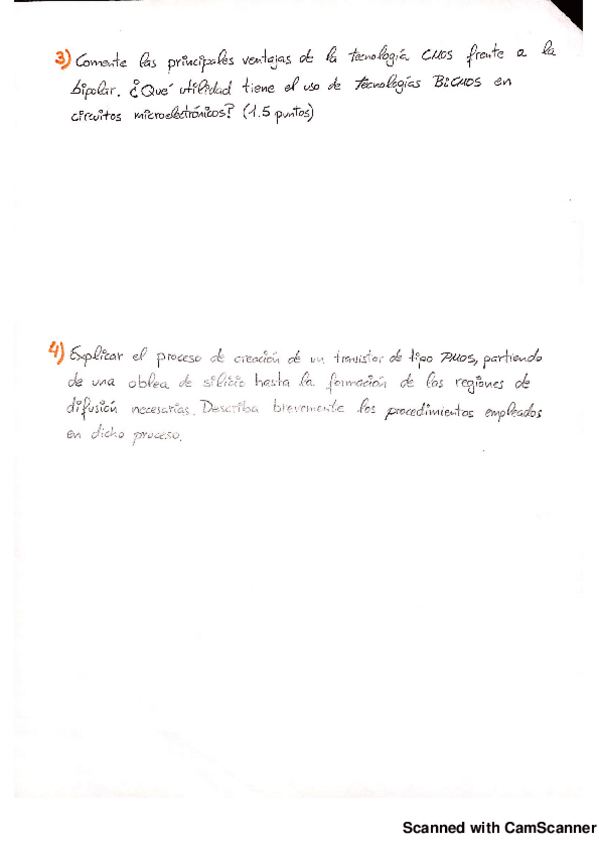 3) Comente las principales ventajas de la tecnología CMOS frente a la
bipolar. ¿Qué utilidad tiene el uso de tecnologías BiCMOS en
circuitos microelectrónicos? (1.5 puntos)
4) Explicar el proceso de creación de un transistor de tipo PMOS, partiendo
de una oblea de silicio hasta la formación de las regiones de
difusión necesarias. Describa brevemente los procedimientos empleados
en dicho proceso.
Scanned with CamScanner